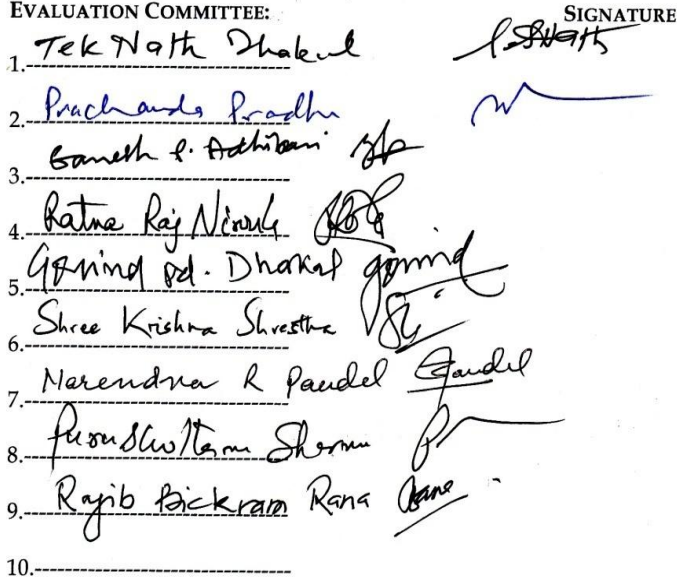 EVALUATION COMMITTEE: SIGNATURE
1. Tek Nath Dhakal
2. Prachanda Pradhan
3. Ganesh P. Adhikari
4. Ratna Raj Niroula
5. Govind pd. Dhakal govind
6. Shree Krishna Shrestha
7. Narendra R Paudel Paudel
8. Purushottam Sharma
9. Rajib Bickram Rana Rana
10.